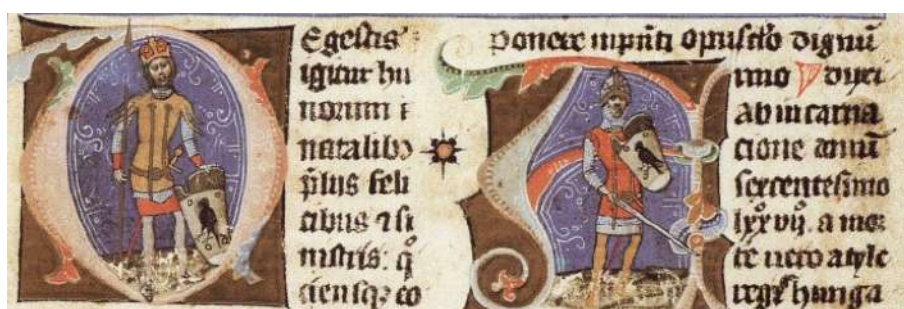 Egestis
igitur hu
norum ⁊
natalibꝫ
p̄liis feli
cibus ⁊ si
nistris: q̊
ciensqꝫ co
ponere inp̄nti opusc̄lo dignū
nno duxi
ab incarna
cione annū
sexcentesimo
lxx̊ vij. a mor
te uero atyle
hunga